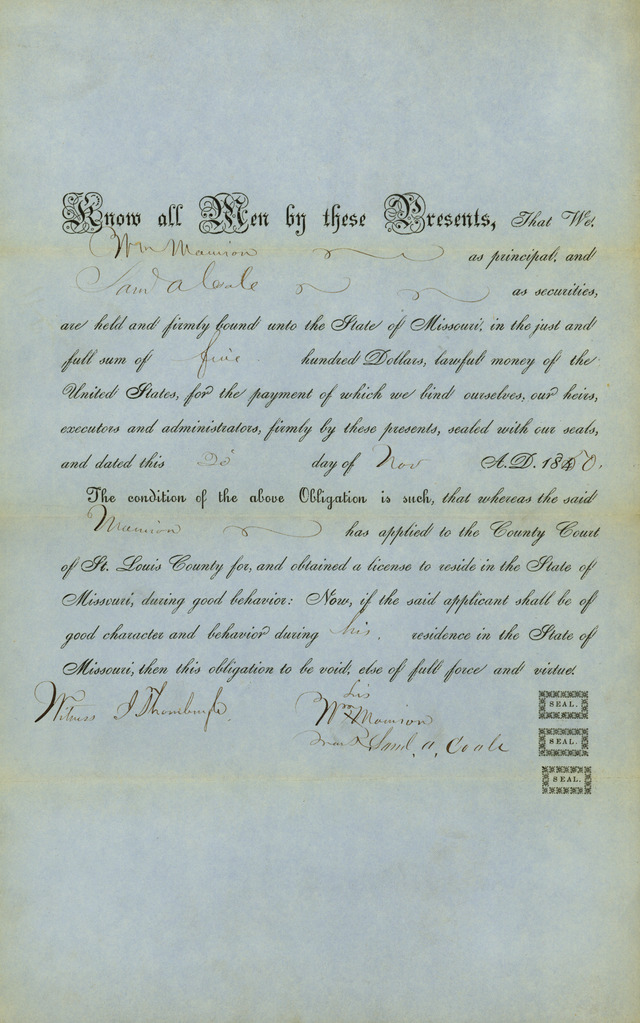 Know all Men by these Presents, That We,
Wm Mamion as principal, and
Saml A Coale as securities,
are held and firmly bound unto the State of Missouri, in the just and
full sum of five hundred Dollars, lawful money of the
United States, for the payment of which we bind ourselves, our heirs,
executors and administrators, firmly by these presents, sealed with our seals,
and dated this 25 day of Nov A.D. 1850.
The condition of the above Obligation is such, that whereas the said
Mamion has applied to the County Court
of St. Louis County for, and obtained a license to reside in the State of
Missouri, during good behavior: Now, if the said applicant shall be of
good character and behavior during his residence in the State of
Missouri, then this obligation to be void, else of full force and virtue.
Witness J Thornburgh.
his
Wm X Mamion SEAL.
mark
Saml. A. Coale SEAL.
SEAL.